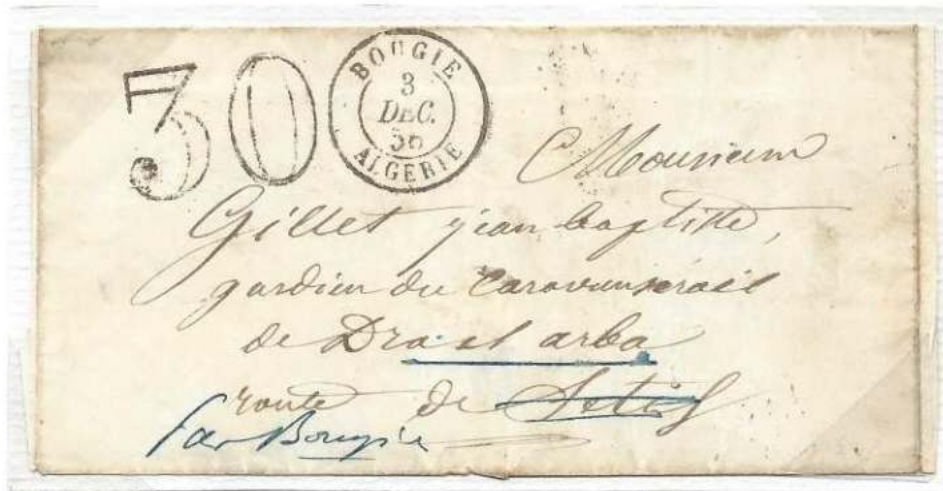 30
BOUGIE
3
DEC.
56
ALGERIE
Monsieur
Gillet jean baptiste,
gardien du Caravansérail
de Dra el arba
route de Sétif
par Bougie